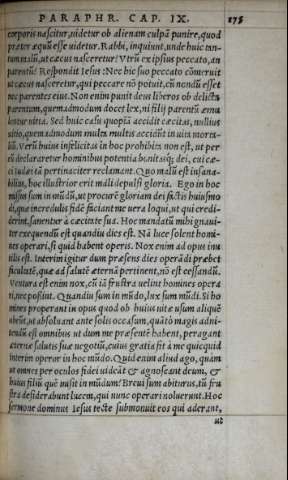 PARAPHR. CAP. IX. 175
corporis nascitur, uidetur ob alienam culpã punire, quod
præter æquũ esse uidetur. Rabbi, inquiunt, unde huic tan-
tum malũ, ut cæcus nasceretur? Vtrũ ex ipsius peccato, an
parentũ? Respondit Iesus: Nec hic suo peccato cõmeruit
ut cæcus nasceretur, qui peccare nõ potuit, cũ nondũ esset
nec parentes eius. Non enim punit deus liberos ob delicta
parentum, quemadmodum docet lex, ni filij parentũ æmu
lentur uitia. Sed huic casu quopiã accidit cæcitas, nullius
uitio, quemadmodum multa multis accidũt in uita morta-
liũ. Verũ huius infelicitas in hoc prohibita non est, ut per
eũ declararetur hominibus potentia bonitasq; dei, cui cæ-
ci iudæi tã pertinaciter reclamant. Quo malũ est insana-
bilius, hoc illustrior erit mali depulsi gloria. Ego in hoc
missus sum in mũdũ, ut procurẽ gloriam dei factis huiusmo
di, quæ incredulis fidẽ faciant me uera loqui, ut qui credi-
derint, sanentur a cæcitate sua. Hoc mandatũ mihi gnaui-
ter exequendũ est quandiu dies est. Nã luce solent homi-
nes operari, si quid habent operis. Nox enim ad opus inu
tilis est. Interim igitur dum præsens dies operã di præbet
ficultatẽ, quæ ad salutẽ æternã pertinent, nõ est cessandũ.
Ventura est enim nox, cũ iã frustra uelint homines opera
ri, nec possint. Quandiu sum in mũdo, lux sum mũdi. Si ho
mines properant in opus quod ob huius uitæ usum aliquẽ
urũt, ut absoluant ante solis occasum, quãto magis adni-
tendũ est omnibus ut dum me præsentẽ habent, peragant
æternæ salutis suæ negotiũ, cuius gratia fit à me quicquid
interim operor in hoc mũdo. Quid enim aliud ago, quàm
ut omnes per oculos fidei uideãt & agnoscant deum, &
huius filiũ quẽ misit in mũdum? Breui sum abiturus, tũ fru
stra desiderabunt lucem, qui nunc operari noluerunt. Hoc
sermone dominus Iesus tecte submonuit eos qui aderant,
ut